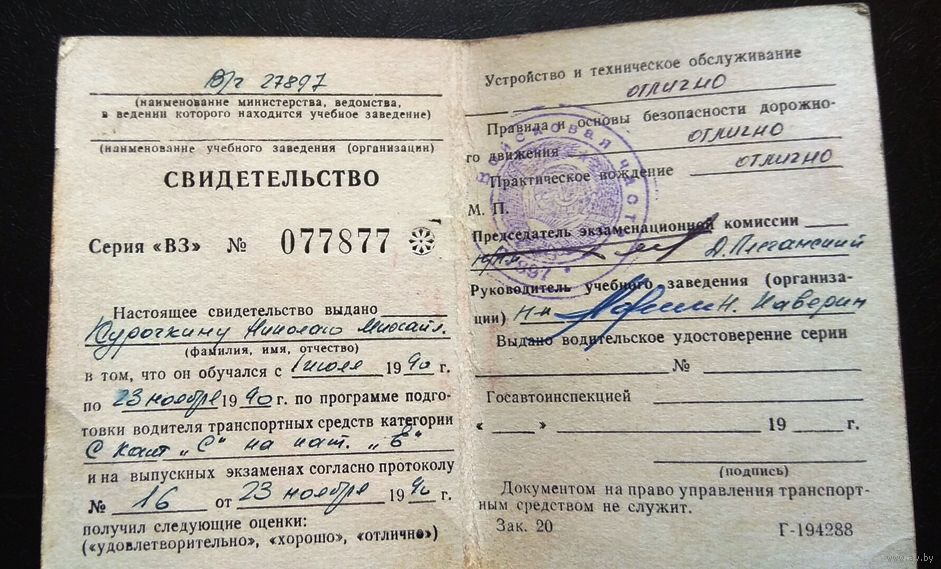 В/ч 27897
(наименование министерства, ведомства,
в ведении которого находится учебное заведение)
(наименование учебного заведения (организации)
СВИДЕТЕЛЬСТВО
Серия «ВЗ» № 077877
Настоящее свидетельство выдано
Курочкину Николаю Михайл.
(фамилия, имя, отчество)
в том, что он обучался с 1 июля 1990 г.
по 23 ноября 1990 г. по программе подго-
товки водителя транспортных средств категории
С кат „С“ на кат. „Е“
и на выпускных экзаменах согласно протоколу
№ 16 от 23 ноября 1990 г.
получил следующие оценки:
(«удовлетворительно», «хорошо», «отлично»)
Устройство и техническое обслуживание
отлично
Правила и основы безопасности дорожно-
го движения отлично
Практическое вождение отлично
М. П.
Войсковая часть
27897
Председатель экзаменационной комиссии
Д.
Руководитель учебного заведения (организа-
ции) Н. Каверин
Выдано водительское удостоверение серии
№
Госавтоинспекцией
« » 19 г.
(подпись)
Документом на право управления транспорт-
ным средством не служит.
Зак. 20 Г-194288
ay.by